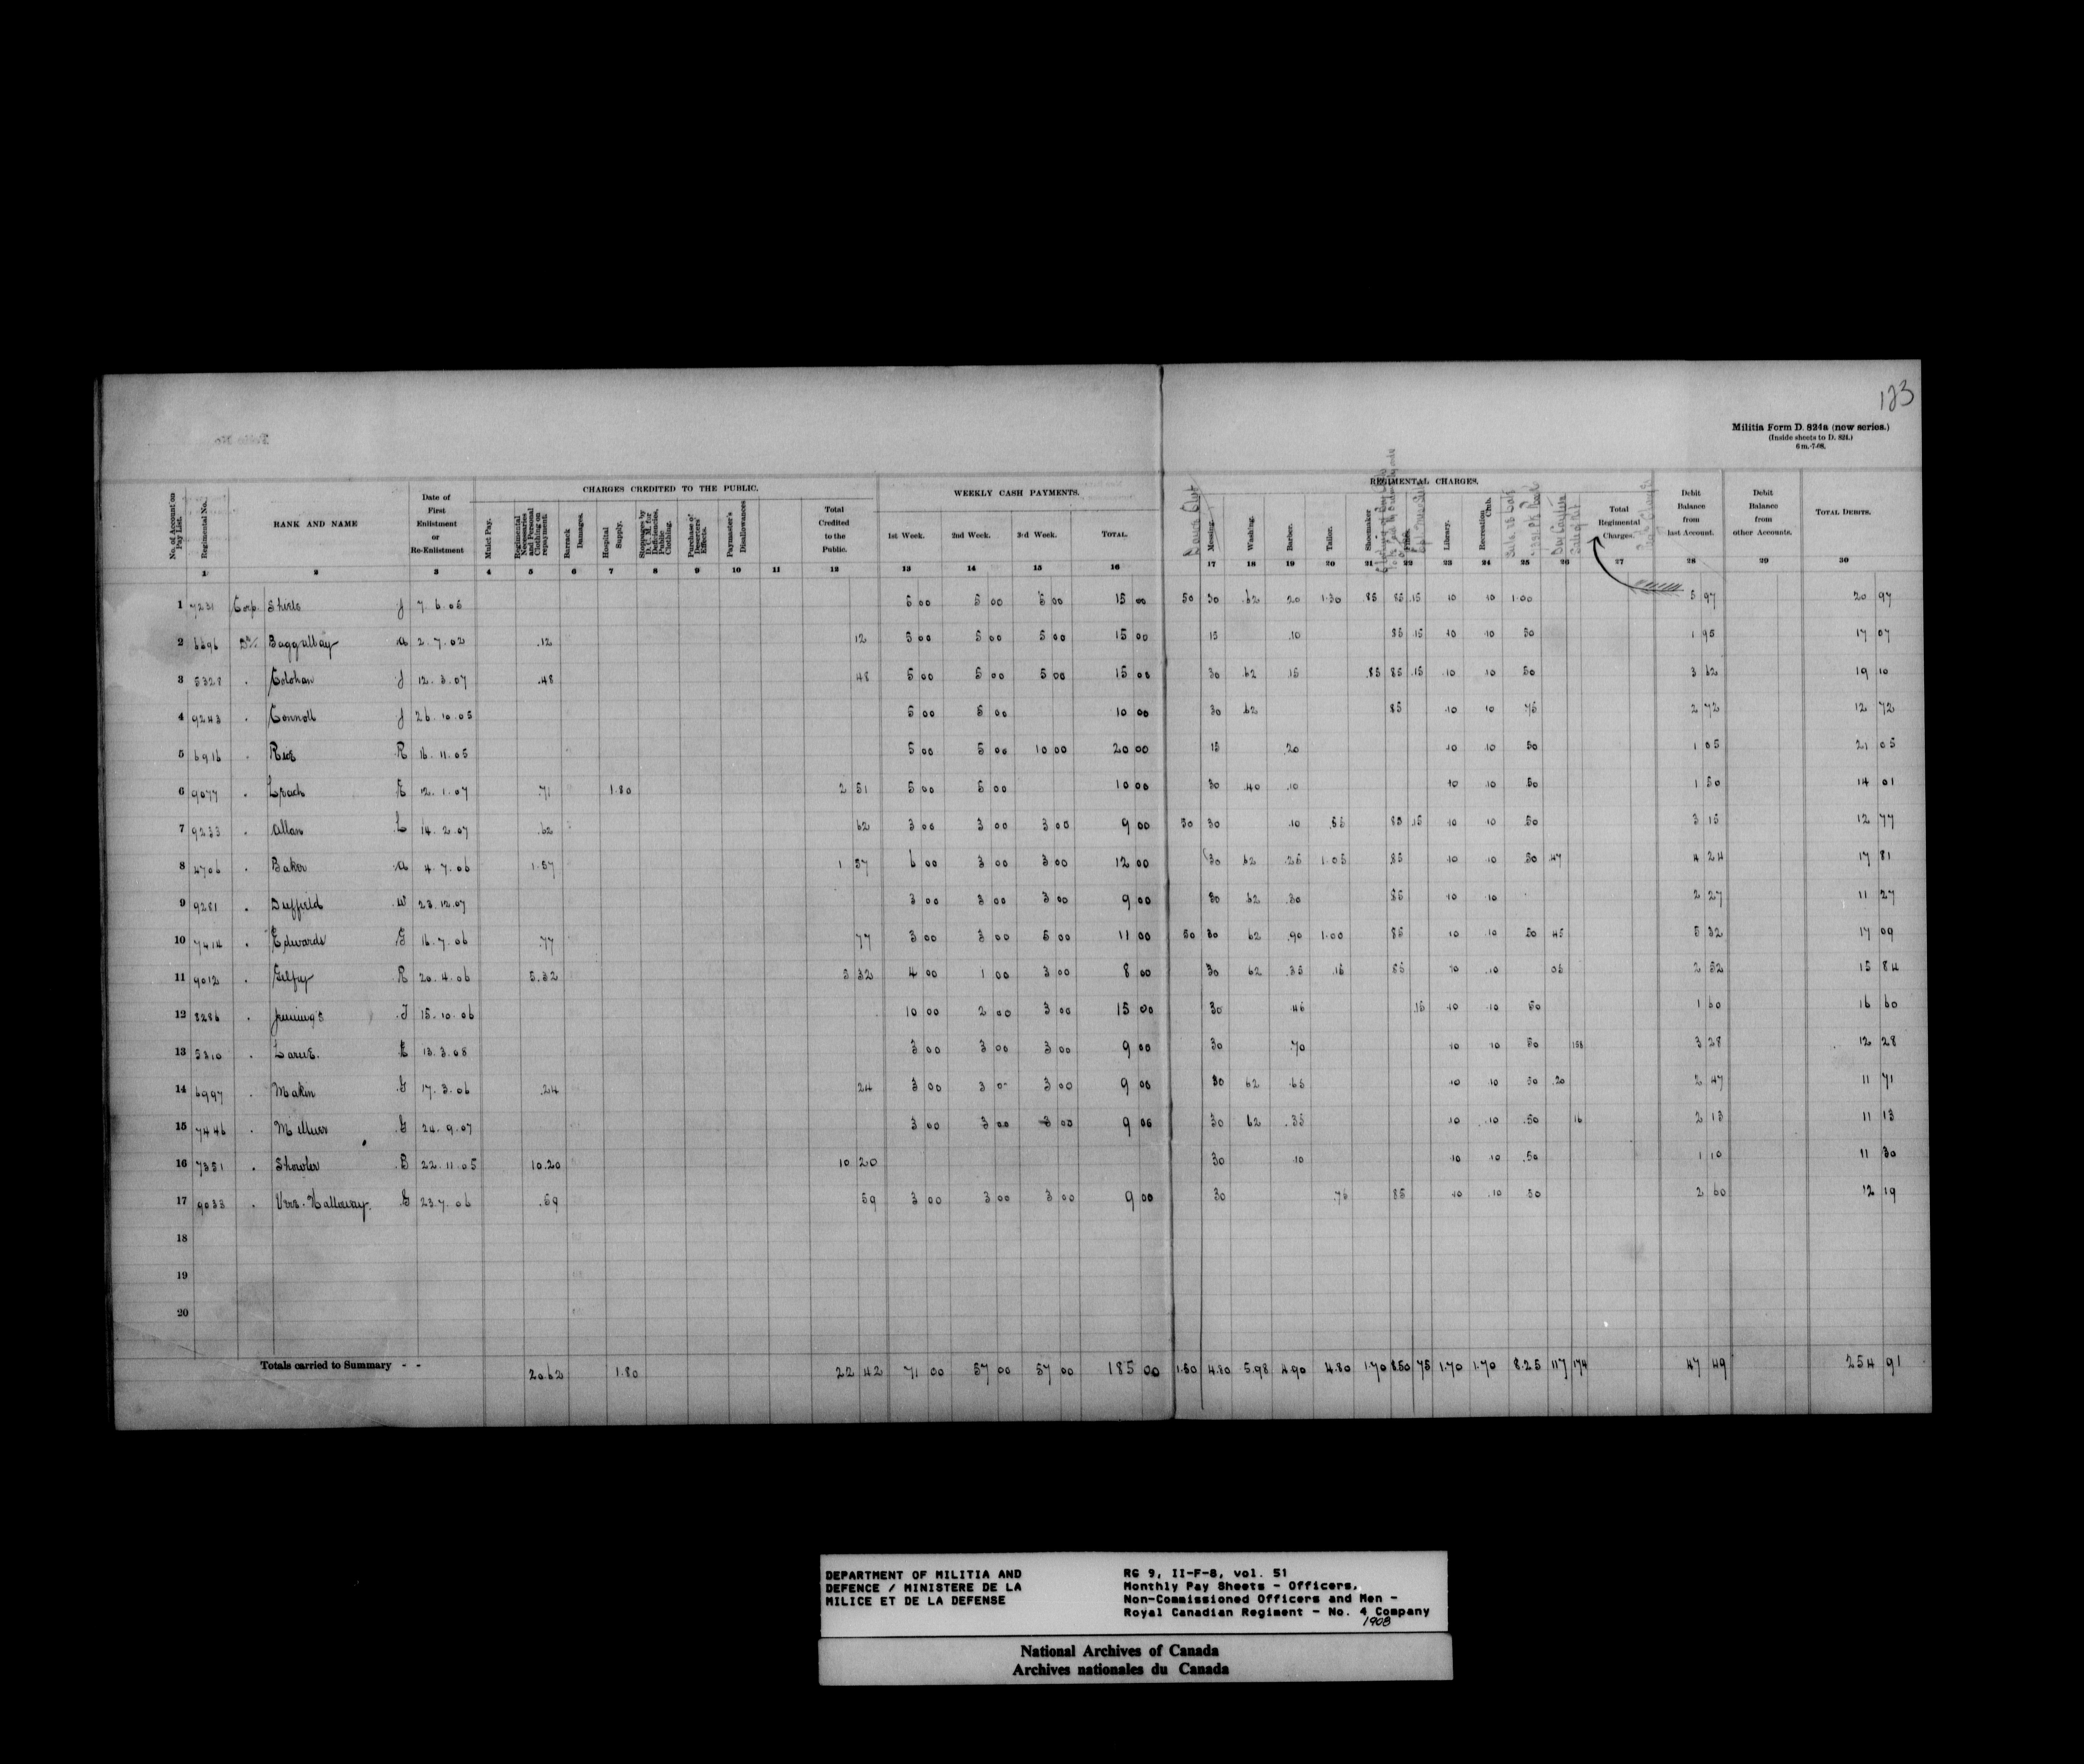 123
Militia Form D. 824a (new series.)
(Inside sheets to D. 824.)
6 m.-7-08.
No. of Account on Pay List.
Regimental No.
RANK AND NAME
Date of First Enlistment or Re-Enlistment
CHARGES CREDITED TO THE PUBLIC.
Mulct Pay.
Regimental Necessaries and Personal Clothing on repayment.
Barrack Damages.
Hospital Supply.
Stoppages by D.C.M. for Deficiencies, Public Clothing.
Purchase of Deserters' Effects.
Paymaster's Disallowances
Total Credited to the Public.
WEEKLY CASH PAYMENTS.
1st Week. 2nd Week. 3rd Week. TOTAL.
REGIMENTAL CHARGES.
Messing. Washing. Barber. Tailor. Shoemaker Library. Recreation Club.
Total Regimental Charges.
Debit Balance from last Account.
Debit Balance from other Accounts.
TOTAL DEBITS.
1 2 3 4 5 6 7 8 9 10 11 12 13 14 15 16 17 18 19 20 21 22 23 24 25 26 27 28 29 30
1 7231 Corp. Shiels J 7.6.06 5 00 5 00 5 00 15 00 50 30 .62 20 1.30 .85 85 .15 10 10 1.00 5 97 20 97
2 6696 Baggallay A 2.7.02 .12 12 5 00 5 00 5 00 15 00 15 .10 85 15 10 10 50 1 95 17 07
3 5328 . Colohan J 12.3.07 .48 48 5 00 5 00 5 00 15 00 30 62 15 .85 85 .15 10 10 50 3 62 19 10
4 9243 . Connoll J 26.10.05 5 00 5 00 10 00 30 62 85 10 10 75 2 72 12 72
5 6916 . Rice R 16.11.05 5 00 5 00 10 00 20 00 15 .20 10 10 50 1 05 21 05
6 9077 . Leach E 12.1.07 .71 1.80 2 51 5 00 5 00 10 00 30 .40 .10 10 10 50 1 50 14 01
7 9233 . Allan L 14.2.07 .62 62 3 00 3 00 3 00 9 00 50 30 .10 .55 85 .15 10 10 .50 3 15 12 77
8 4706 . Baker A 4.7.06 1.57 1 57 6 00 3 00 3 00 12 00 30 62 .25 1.05 .85 10 10 50 .47 4 24 17 81
9 9281 . Duffield W 23.12.07 3 00 3 00 3 00 9 00 30 62 .30 85 10 10 2 27 11 27
10 7414 . Edwards G 16.7.06 .77 77 3 00 3 00 5 00 11 00 50 30 62 .90 1.00 85 10 10 50 45 5 32 17 09
11 9012 . Gelfry R 20.4.06 5.32 5 32 4 00 1 00 3 00 8 00 30 62 .35 .15 85 10 .10 05 2 52 15 84
12 8286 . Jennings J 15.10.06 10 00 2 00 3 00 15 00 30 45 .15 10 10 50 1 60 16 60
13 5310 . Larue. E 13.3.08 3 00 3 00 3 00 9 00 30 .70 10 10 50 158 3 28 12 28
14 6997 . Makin G 17.3.06 .24 24 3 00 3 00 3 00 9 00 30 62 .65 10 10 50 .20 2 47 11 71
15 7446 . G 24.9.07 3 00 3 00 3 00 9 00 30 62 .35 10 .10 .50 16 2 13 11 13
16 7351 . Showler B 22.11.05 10.20 10 20 30 .10 10 10 .50 1 10 11 30
17 9033 . Vere-Halloway. G 23.7.06 .59 59 3 00 3 00 3 00 9 00 30 .75 85 10 .10 50 2 60 12 19
18
19
20
Totals carried to Summary - - 20.62 1.80 22 42 71 00 57 00 57 00 185 00 1.50 4.80 5.98 4.90 4.80 1.70 8.50 75 1.70 1.70 8.25 117 174 47 49 254 91
DEPARTMENT OF MILITIA AND
DEFENCE / MINISTERE DE LA
MILICE ET DE LA DEFENSE
RG 9, II-F-8, vol. 51
Monthly Pay Sheets - Officers,
Non-Commissioned Officers and Men -
Royal Canadian Regiment - No. 4 Company
1908
National Archives of Canada
Archives nationales du Canada